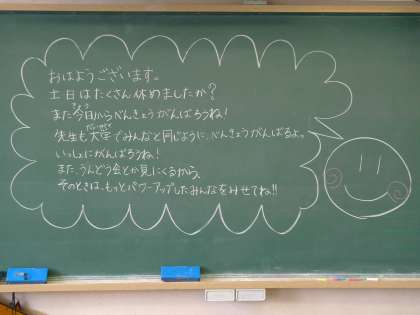 おはようございます。
土日はたくさん休めましたか？
また今日からべんきょうがんばろうね！
先生も大学でみんなと同じように、べんきょうがんばるよ。
いっしょにがんばろうね！
また、うんどう会とか見にくるから、
そのときは、もっとパワーアップしたみんなをみせてね!!